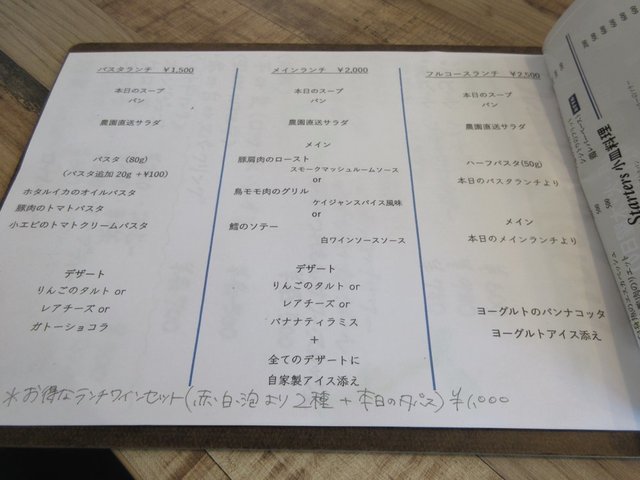 パスタランチ ￥1,500
本日のスープ
パン
農園直送サラダ
パスタ (80g)
(パスタ追加 20g +¥100)
ホタルイカのオイルパスタ
豚肉のトマトパスタ
小エビのトマトクリームパスタ
デザート
りんごのタルト or
レアチーズ or
ガトーショコラ
メインランチ ￥2,000
本日のスープ
パン
農園直送サラダ
メイン
豚肩肉のロースト
スモークマッシュルームソース
or
鳥モモ肉のグリル
ケイジャンスパイス風味
or
鱈のソテー
白ワインソースソース
デザート
りんごのタルト or
レアチーズ or
バナナティラミス
+
全てのデザートに
自家製アイス添え
フルコースランチ ￥2,500
本日のスープ
パン
農園直送サラダ
ハーフパスタ(50g)
本日のパスタランチより
メイン
本日のメインランチより
ヨーグルトのパンナコッタ
ヨーグルトアイス添え
※お得なランチワインセット(赤、白、泡より2種+本日のタパス) ¥1,000
Starters 小皿料理